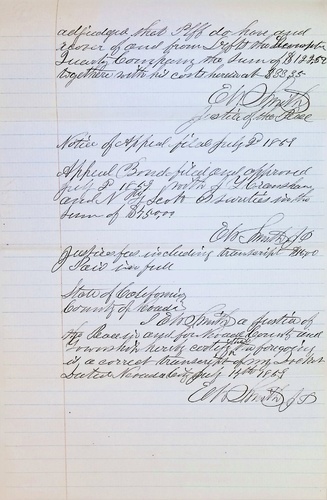 adjudged that Plff do have and
recover of and from Defts the
Company the Sum of $
together with his costs herein at $
E W Smith
Justice of the Peace
Notice of Appeal filed July 2d 1859
Appeal Bond filed and approved
July 2d 1859 with J
and N Scott as sureties in the
sum of
E W Smith J P
Justices fees including transcript
Paid in full
State of California
County of Nevada
I E W Smith a Justice of
the Peace in and for Nevada County and
Township hereby certify the foregoing
is a correct transcript of my Docket
Dated Nevada City July 1859
E W Smith J P